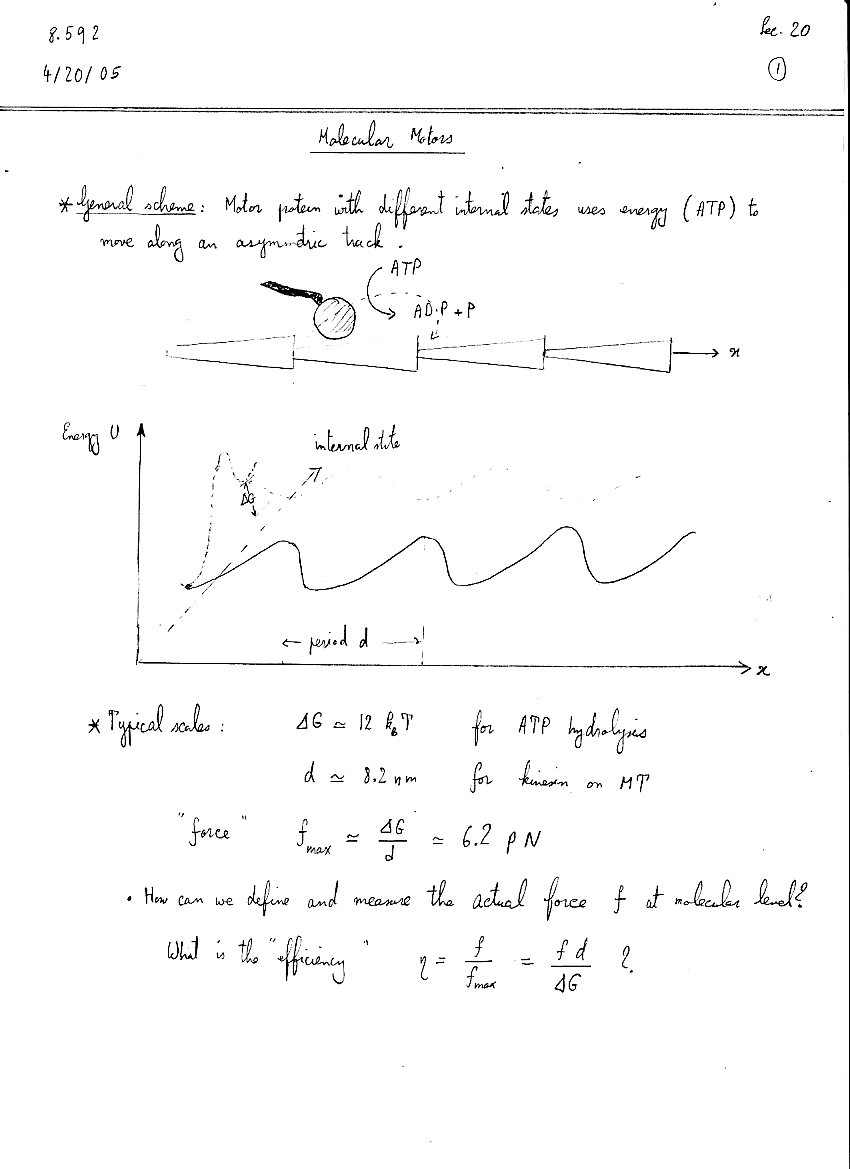 8.592
Lec. 20
4/20/05
1
Molecular Motors
* General scheme: Motor protein with different internal states uses energy (ATP) to
move along an asymmetric track.
ATP
ADP + P
x
Energy U
internal state
ΔG
← period d →
x
* Typical scales: ΔG ≃ 12 k_B T for ATP hydrolysis
d ≃ 8.2 nm for kinesin on MT
"force" f_max ≃ ΔG/d ≃ 6.2 pN
• How can we define and measure the actual force f at molecular level?
What is the "efficiency" η = f/f_max = f d/ΔG ?